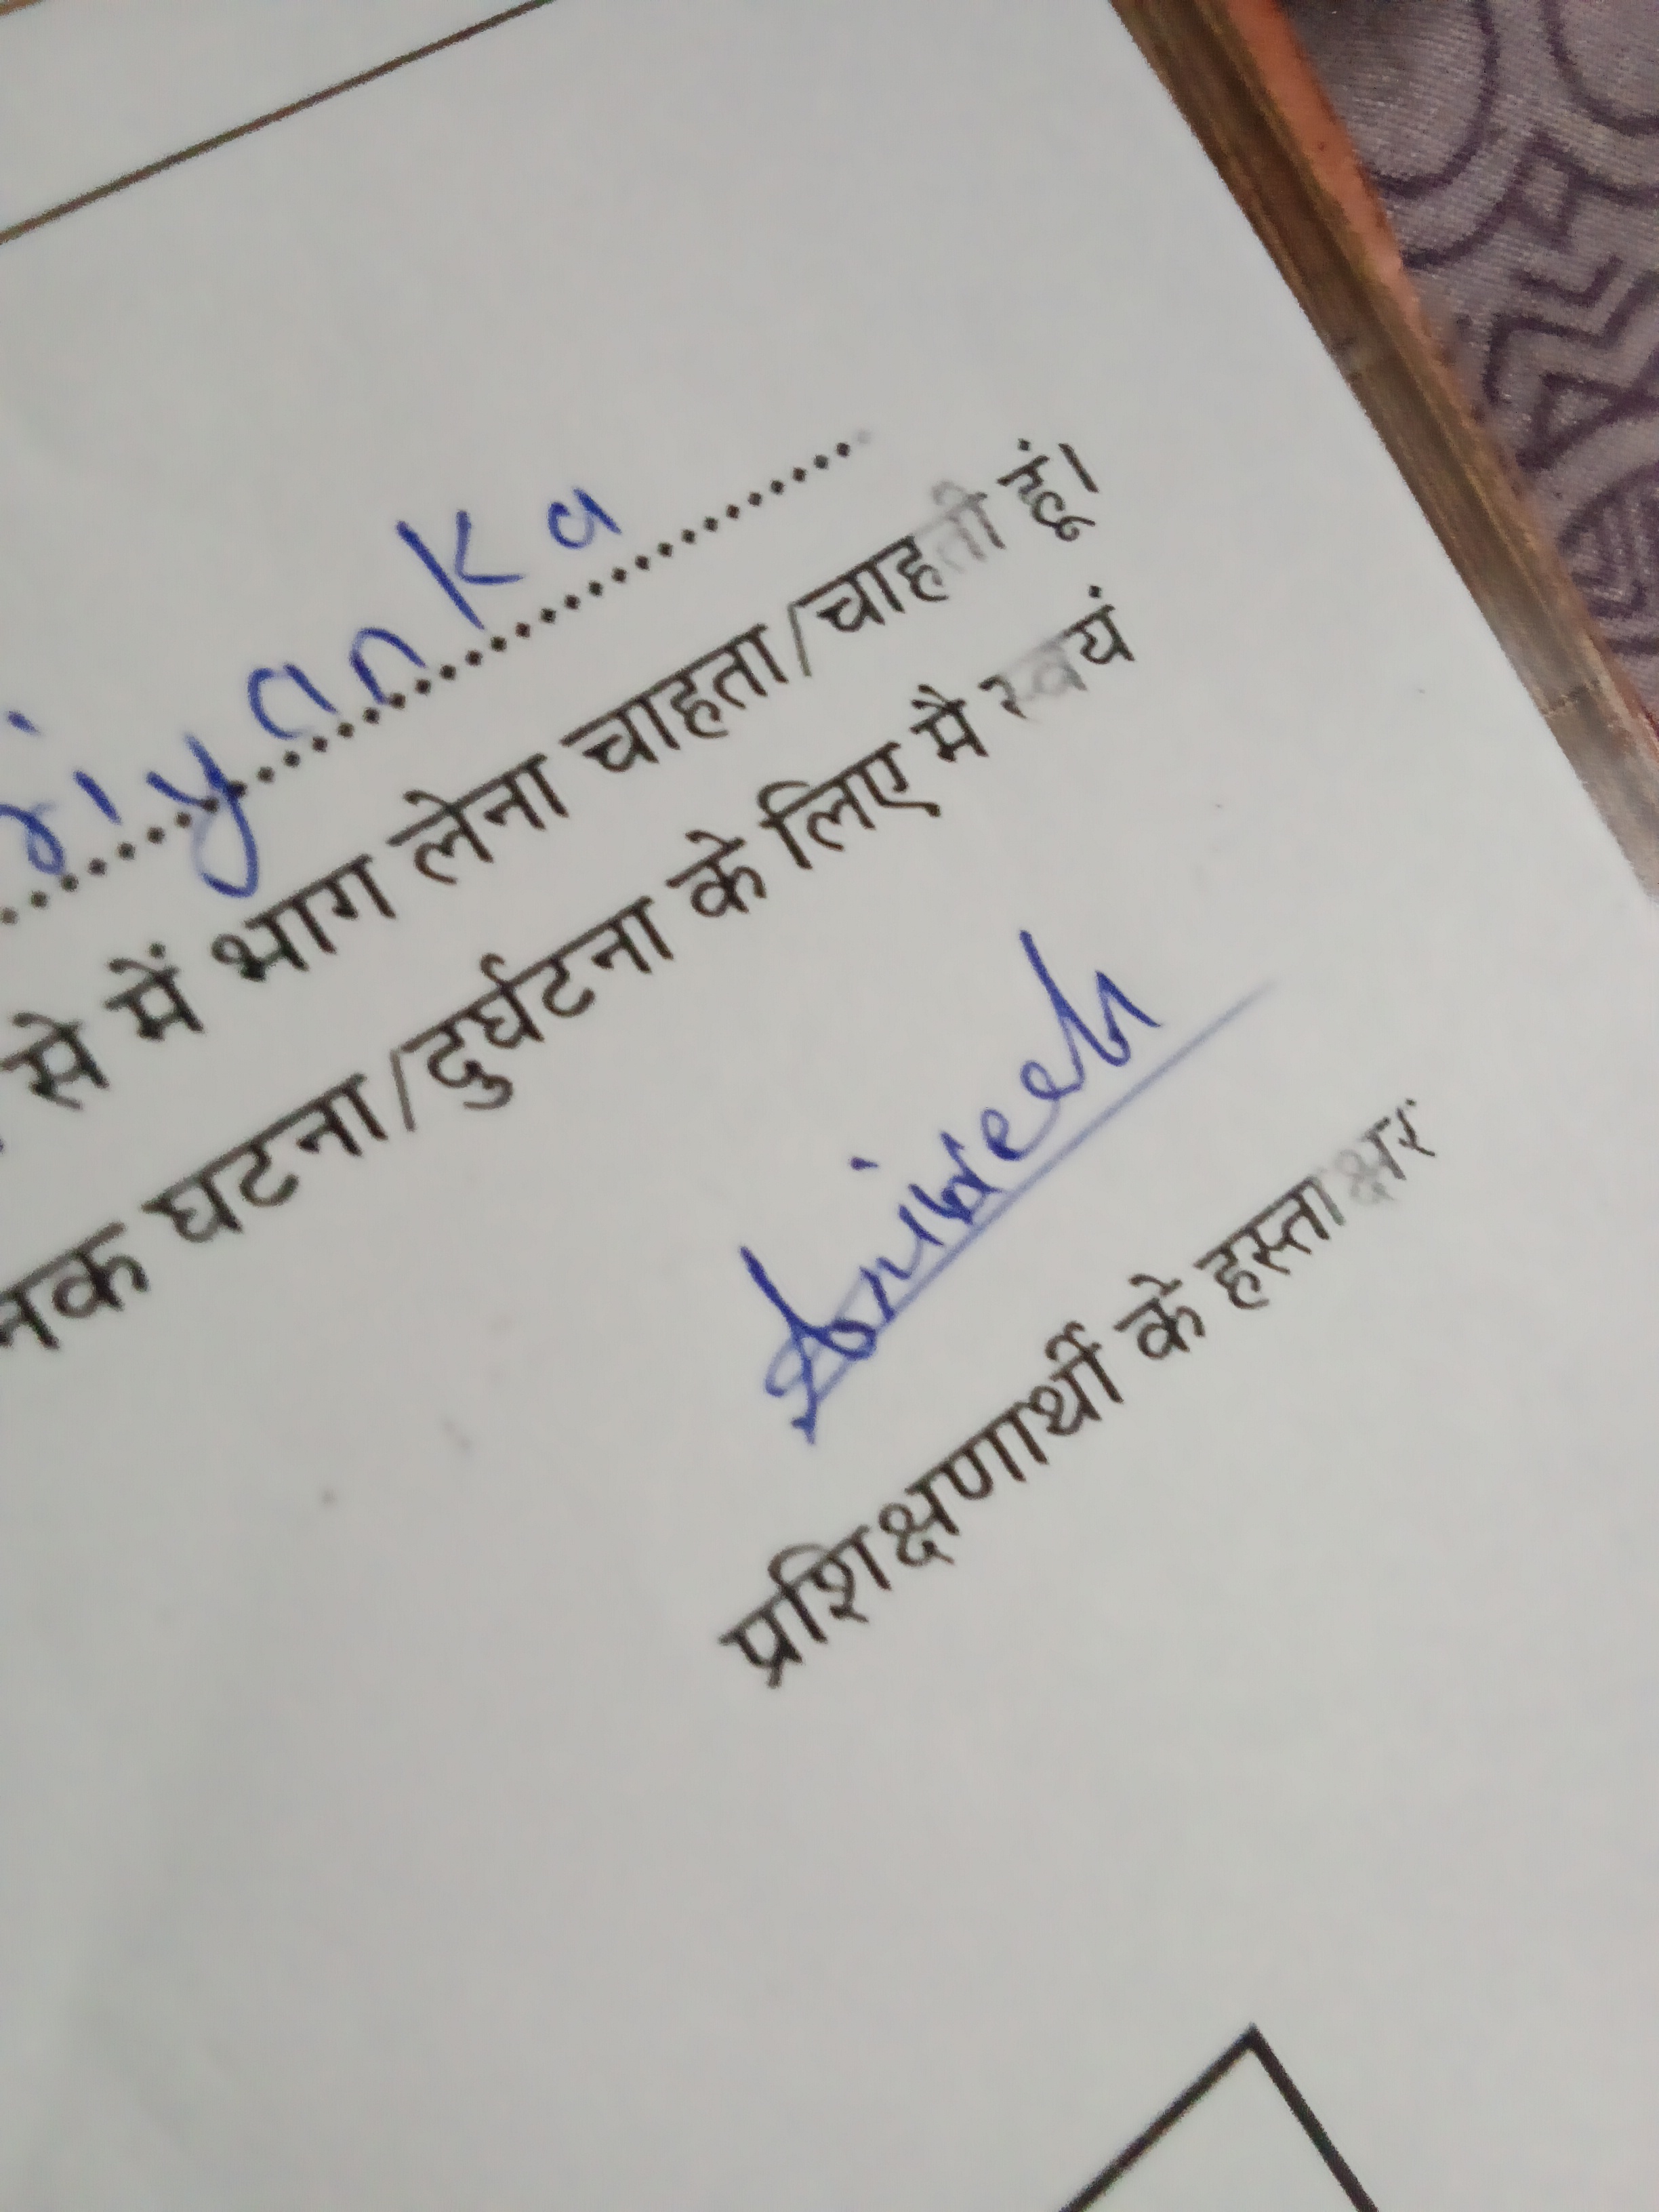 riyanka
से में भाग लेना चाहता/चाहती हूं।
नक घटना/दुर्घटना के लिए मै स्वयं
प्रशिक्षणार्थी के हस्ताक्षर